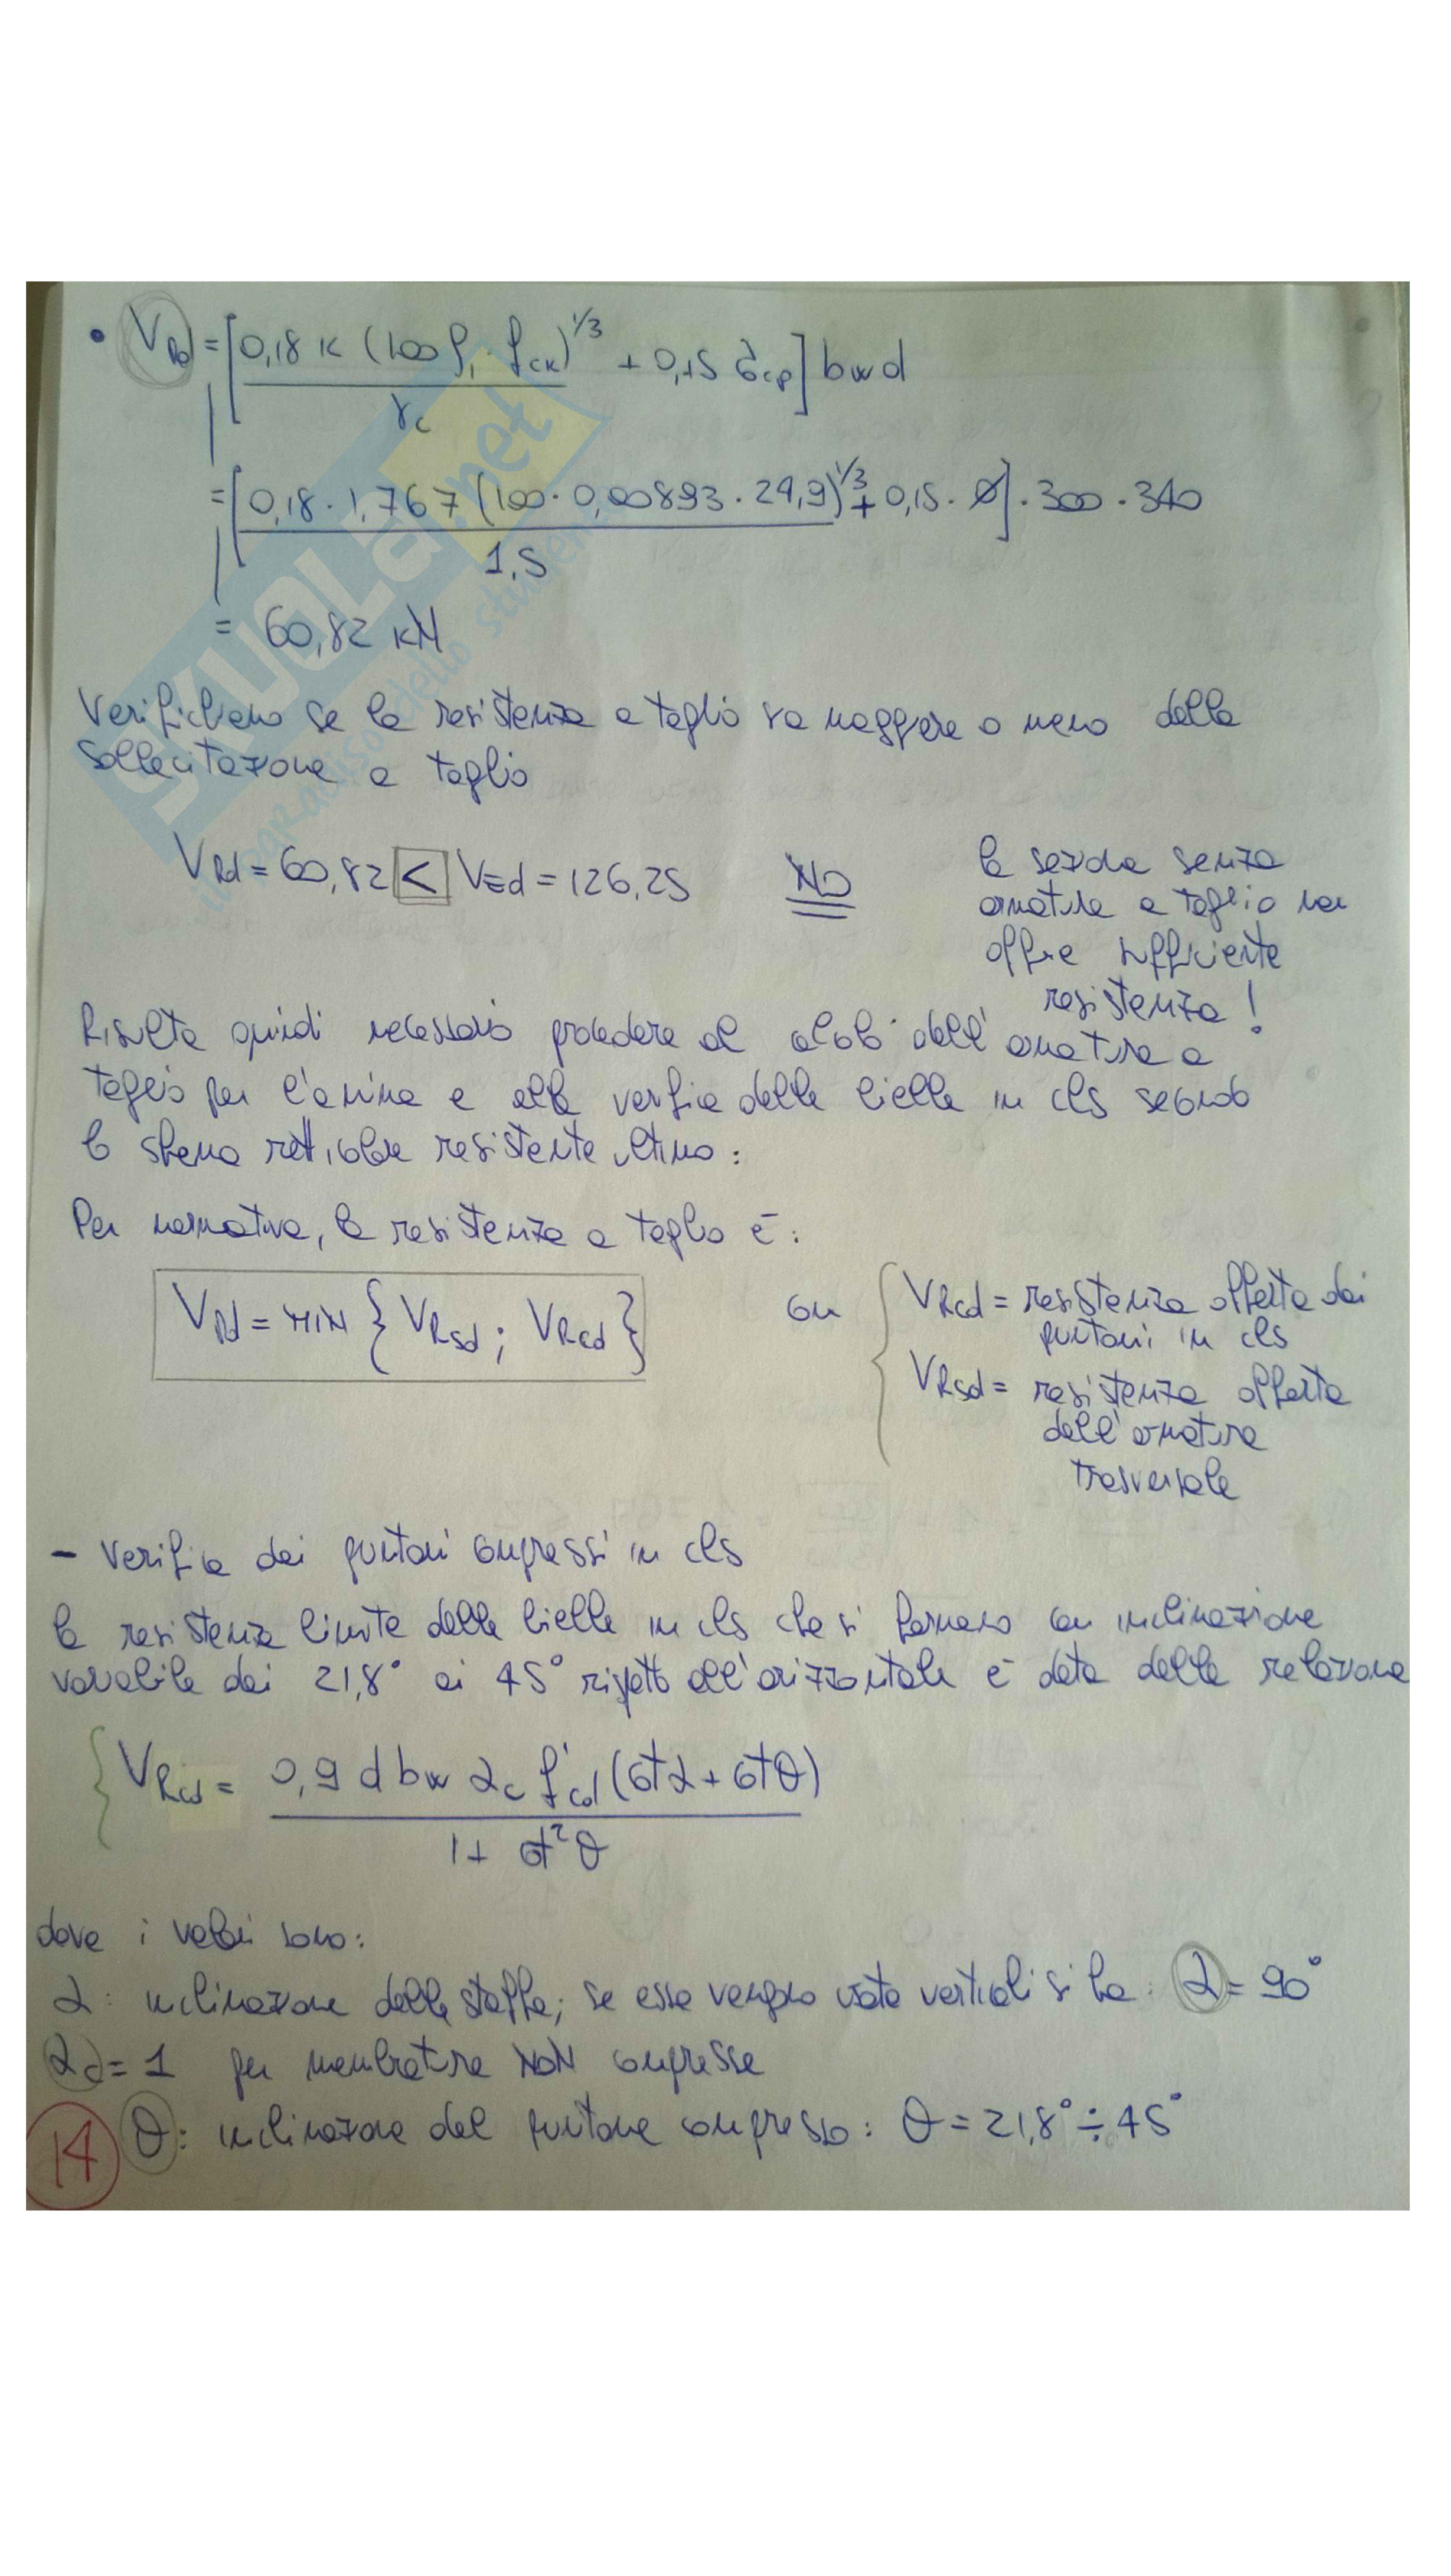 • VRd = [0,18 K (100 ρ1 · fck)^1/3 / γc + 0,15 σcp] bw d
= [0,18 · 1,767 (100 · 0,00893 · 24,9)^1/3 / 1,5 + 0,15 · 0] · 300 · 340
= 60,82 KN
Verifichiamo se la resistenza a taglio sia maggiore o meno della
sollecitazione a taglio
VRd = 60,82 < VEd = 126,25 NO
la sezione senza
armatura a taglio non
offre sufficiente
resistenza!
Risulta quindi necessario procedere al calcolo dell'armatura a
taglio per l'anima e alla verifica delle bielle in cls secondo
lo schema reticolare resistente ultimo:
Per normativa, la resistenza a taglio è:
VRd = MIN { VRsd ; VRcd }
con { VRcd = resistenza offerta dai
puntoni in cls
VRsd = resistenza offerta
dall'armatura
trasversale
- Verifica dei puntoni compressi in cls
la resistenza limite delle bielle in cls che si formano con inclinazione
variabile dai 21,8° ai 45° rispetto all'orizzontale è data dalla relazione
{ VRcd = 0,9 d bw αc f'cd (ctα + ctθ) / 1 + ct²θ
dove i valori sono:
α: inclinazione delle staffe; se esse vengono usate verticali si ha: α = 90°
αc = 1 per membrature NON compresse
θ: inclinazione del puntone compresso: θ = 21,8° ÷ 45°
14
SKUOLA.net
il paradiso dello studente